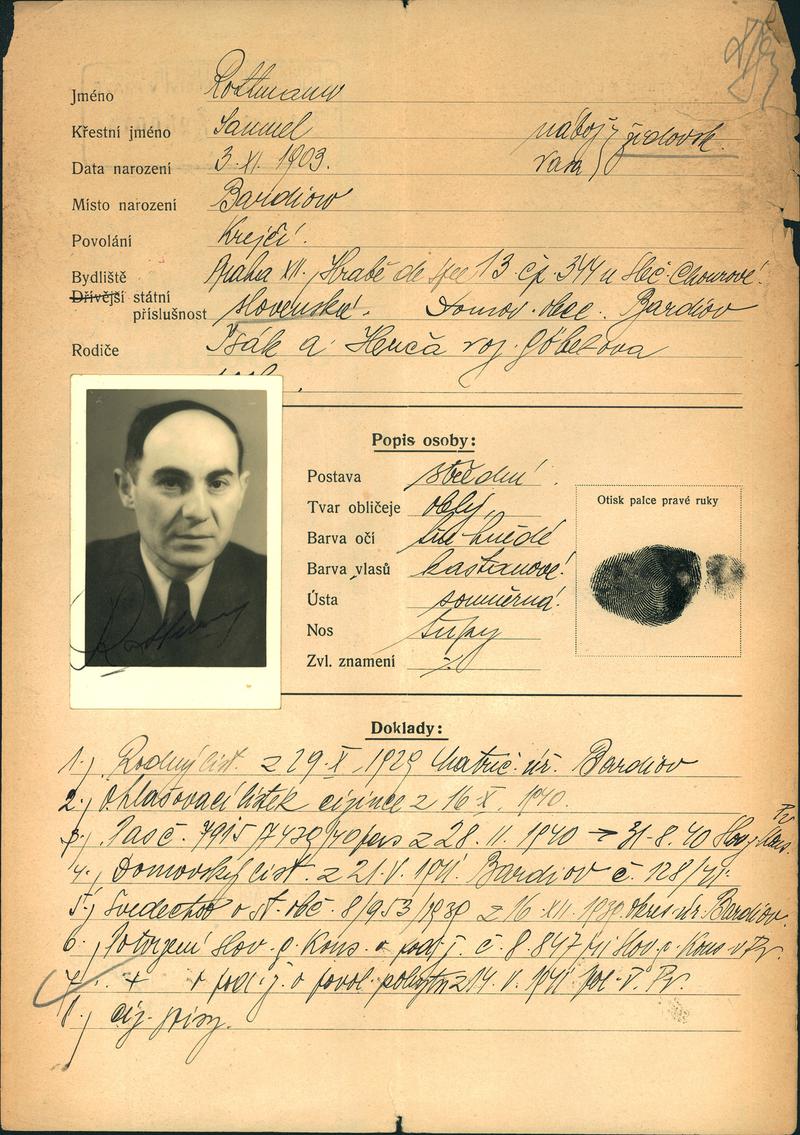 Jméno Rottmann
Křestní jméno Samuel nábož židovsk.
Data narození 3. XI. 1903. rasa
Místo narození Bardiow
Povolání Krejčí.
Bydliště Praha XII. Hrabě de 13 čp. 344 u
Dřívější státní
příslušnost slovenská. Domov. obec. Bardiov
Rodiče Isák a Herča roz. Göbelova
Popis osoby:
Postava střední
Tvar obličeje oblý
Otisk palce pravé ruky
Barva očí hnědé
Barva vlasů kaštanové
Ústa souměrná
Nos tupý
Zvl. znamení
Rottmann
Doklady:
1.) Rodný list. z 29. X. 1929 Matrič. úř. Bardiov
2.) Ohlašovací lístek cizince z 16. X. 1940.
3.) Pas č. 7915 z 28. 11. 1940 → 31-8. 40
4.) Domovský list. z 21. V. 1941. Bardiov č. 128/41.
5.) Svedectvo o st. obč. 8/953/1939 z 16. XII. 1939 okres. úr. Bardiov.
6.) Potvrzení Slov. g. Kons. o pod. j. č. 8.847/41 Slov. g. Kons. v Pr.
7.) o pod. ž. o povol. pobytu z 14. V. 1941 pol. Pr.
8.)